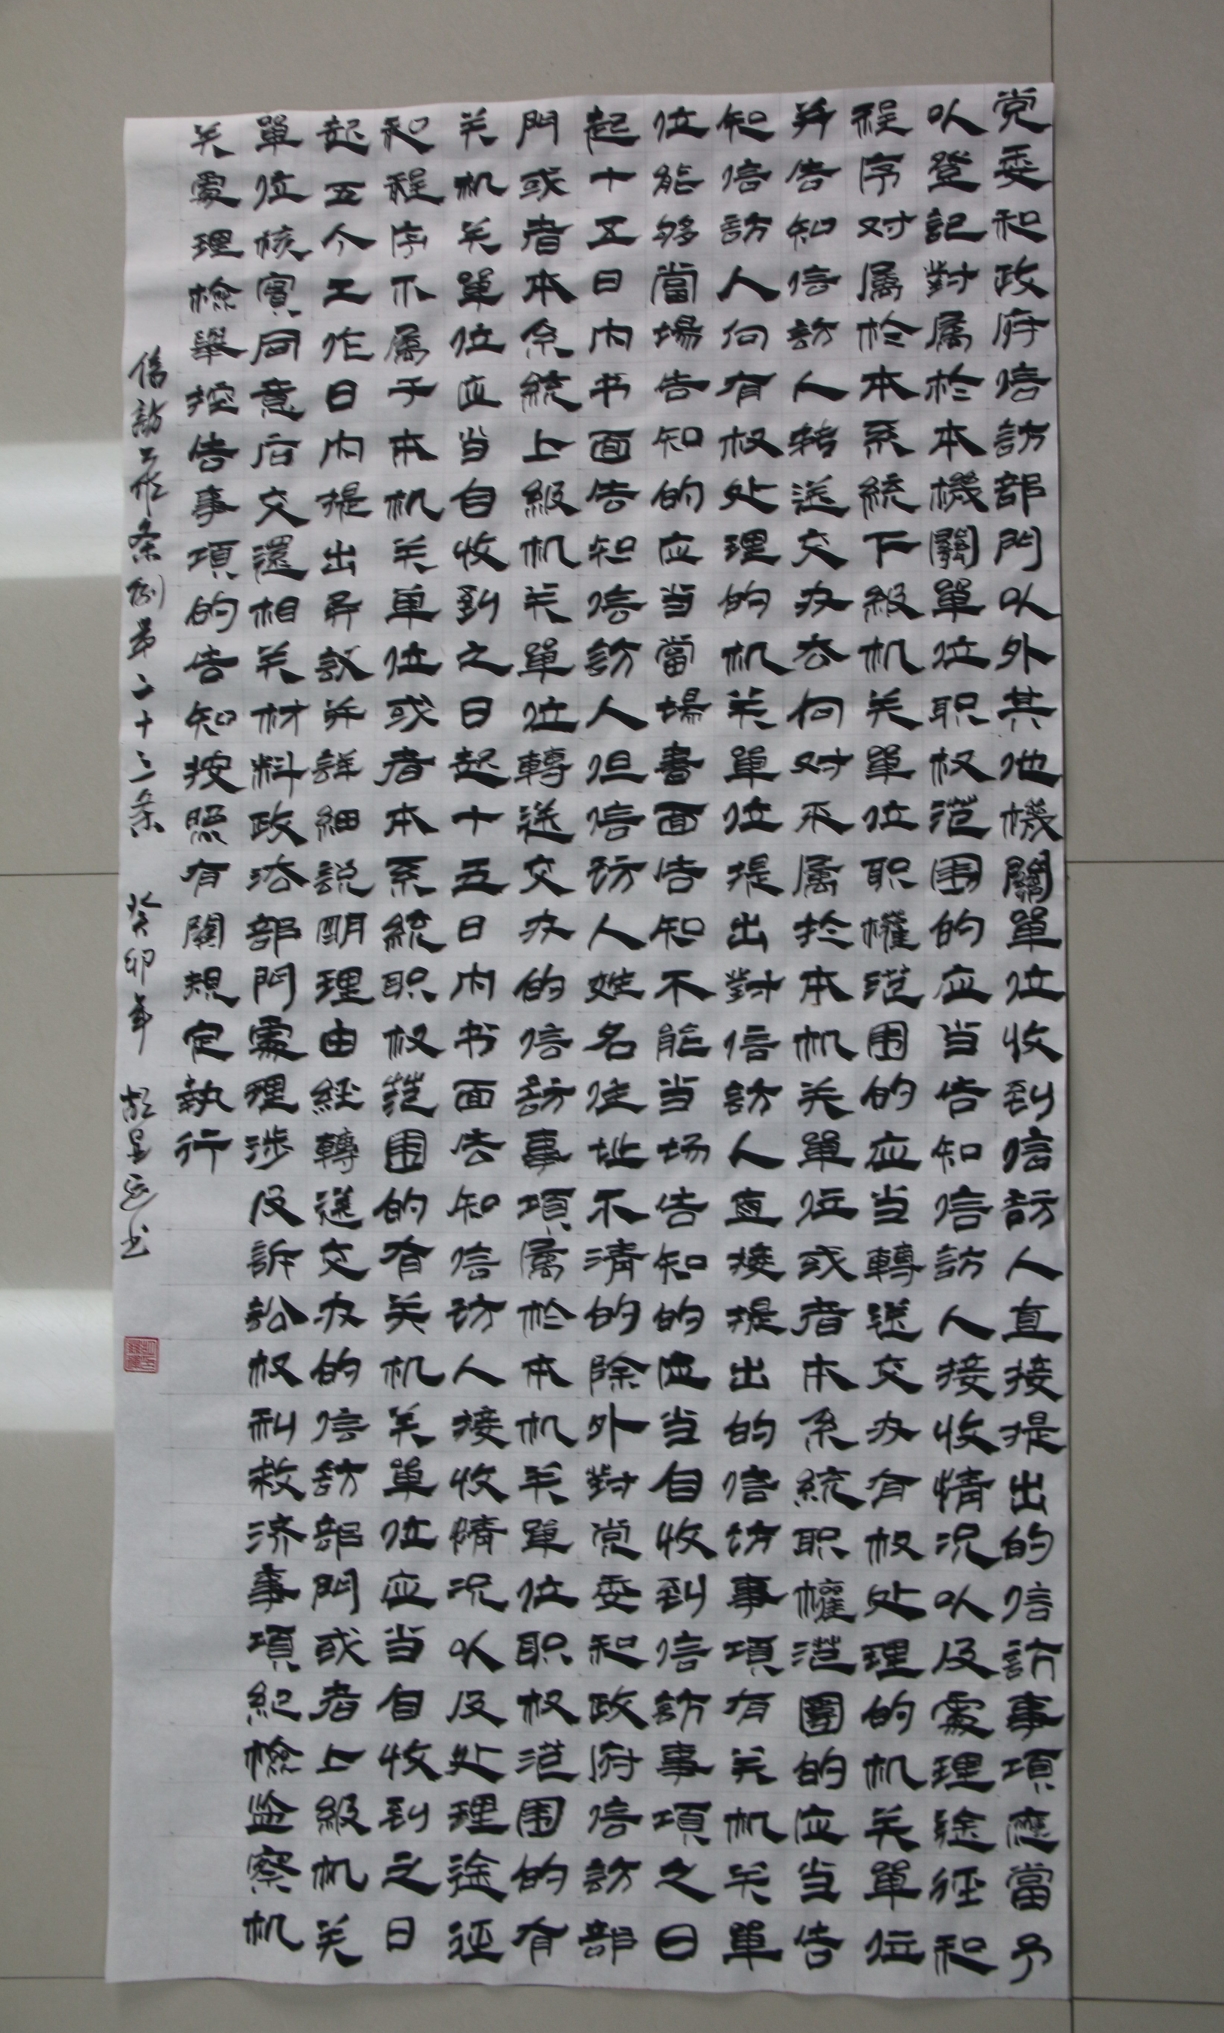 党委和政府信訪部門以外其他機關單位收到信訪人直接提出的信訪事項應當予
以登記對属於本機關單位职权范围的应当告知信訪人接收情况以及處理途徑和
程序对属於本系統下級机关單位职權范围的应当轉送交办有权处理的机关單位
并告知信訪人转送交办去向对不属於本机关單位或者本系統职權范圍的应当告
知信訪人向有权处理的机关單位提出對信訪人直接提出的信访事項有关机关單
位能够當場告知的应当當場書面告知不能当场告知的应当自收到信訪事項之日
起十五日内书面告知信訪人但信访人姓名住址不清的除外對党委和政府信訪部
門或者本系統上級机关單位轉送交办的信訪事項属於本机关單位职权范围的有
关机关單位应当自收到之日起十五日内书面告知信访人接收情况以及处理途徑
和程序不属于本机关单位或者本系統职权范围的有关机关單位应当自收到之日
起五个工作日内提出异议并詳細説明理由經轉送交办的信訪部門或者上級机关
單位核實同意后交還相关材料政法部門處理涉及訴訟权利救济事項紀檢监察机
关處理檢舉控告事項的告知按照有關規定執行
信訪工作条例第二十三条 癸卯年 书